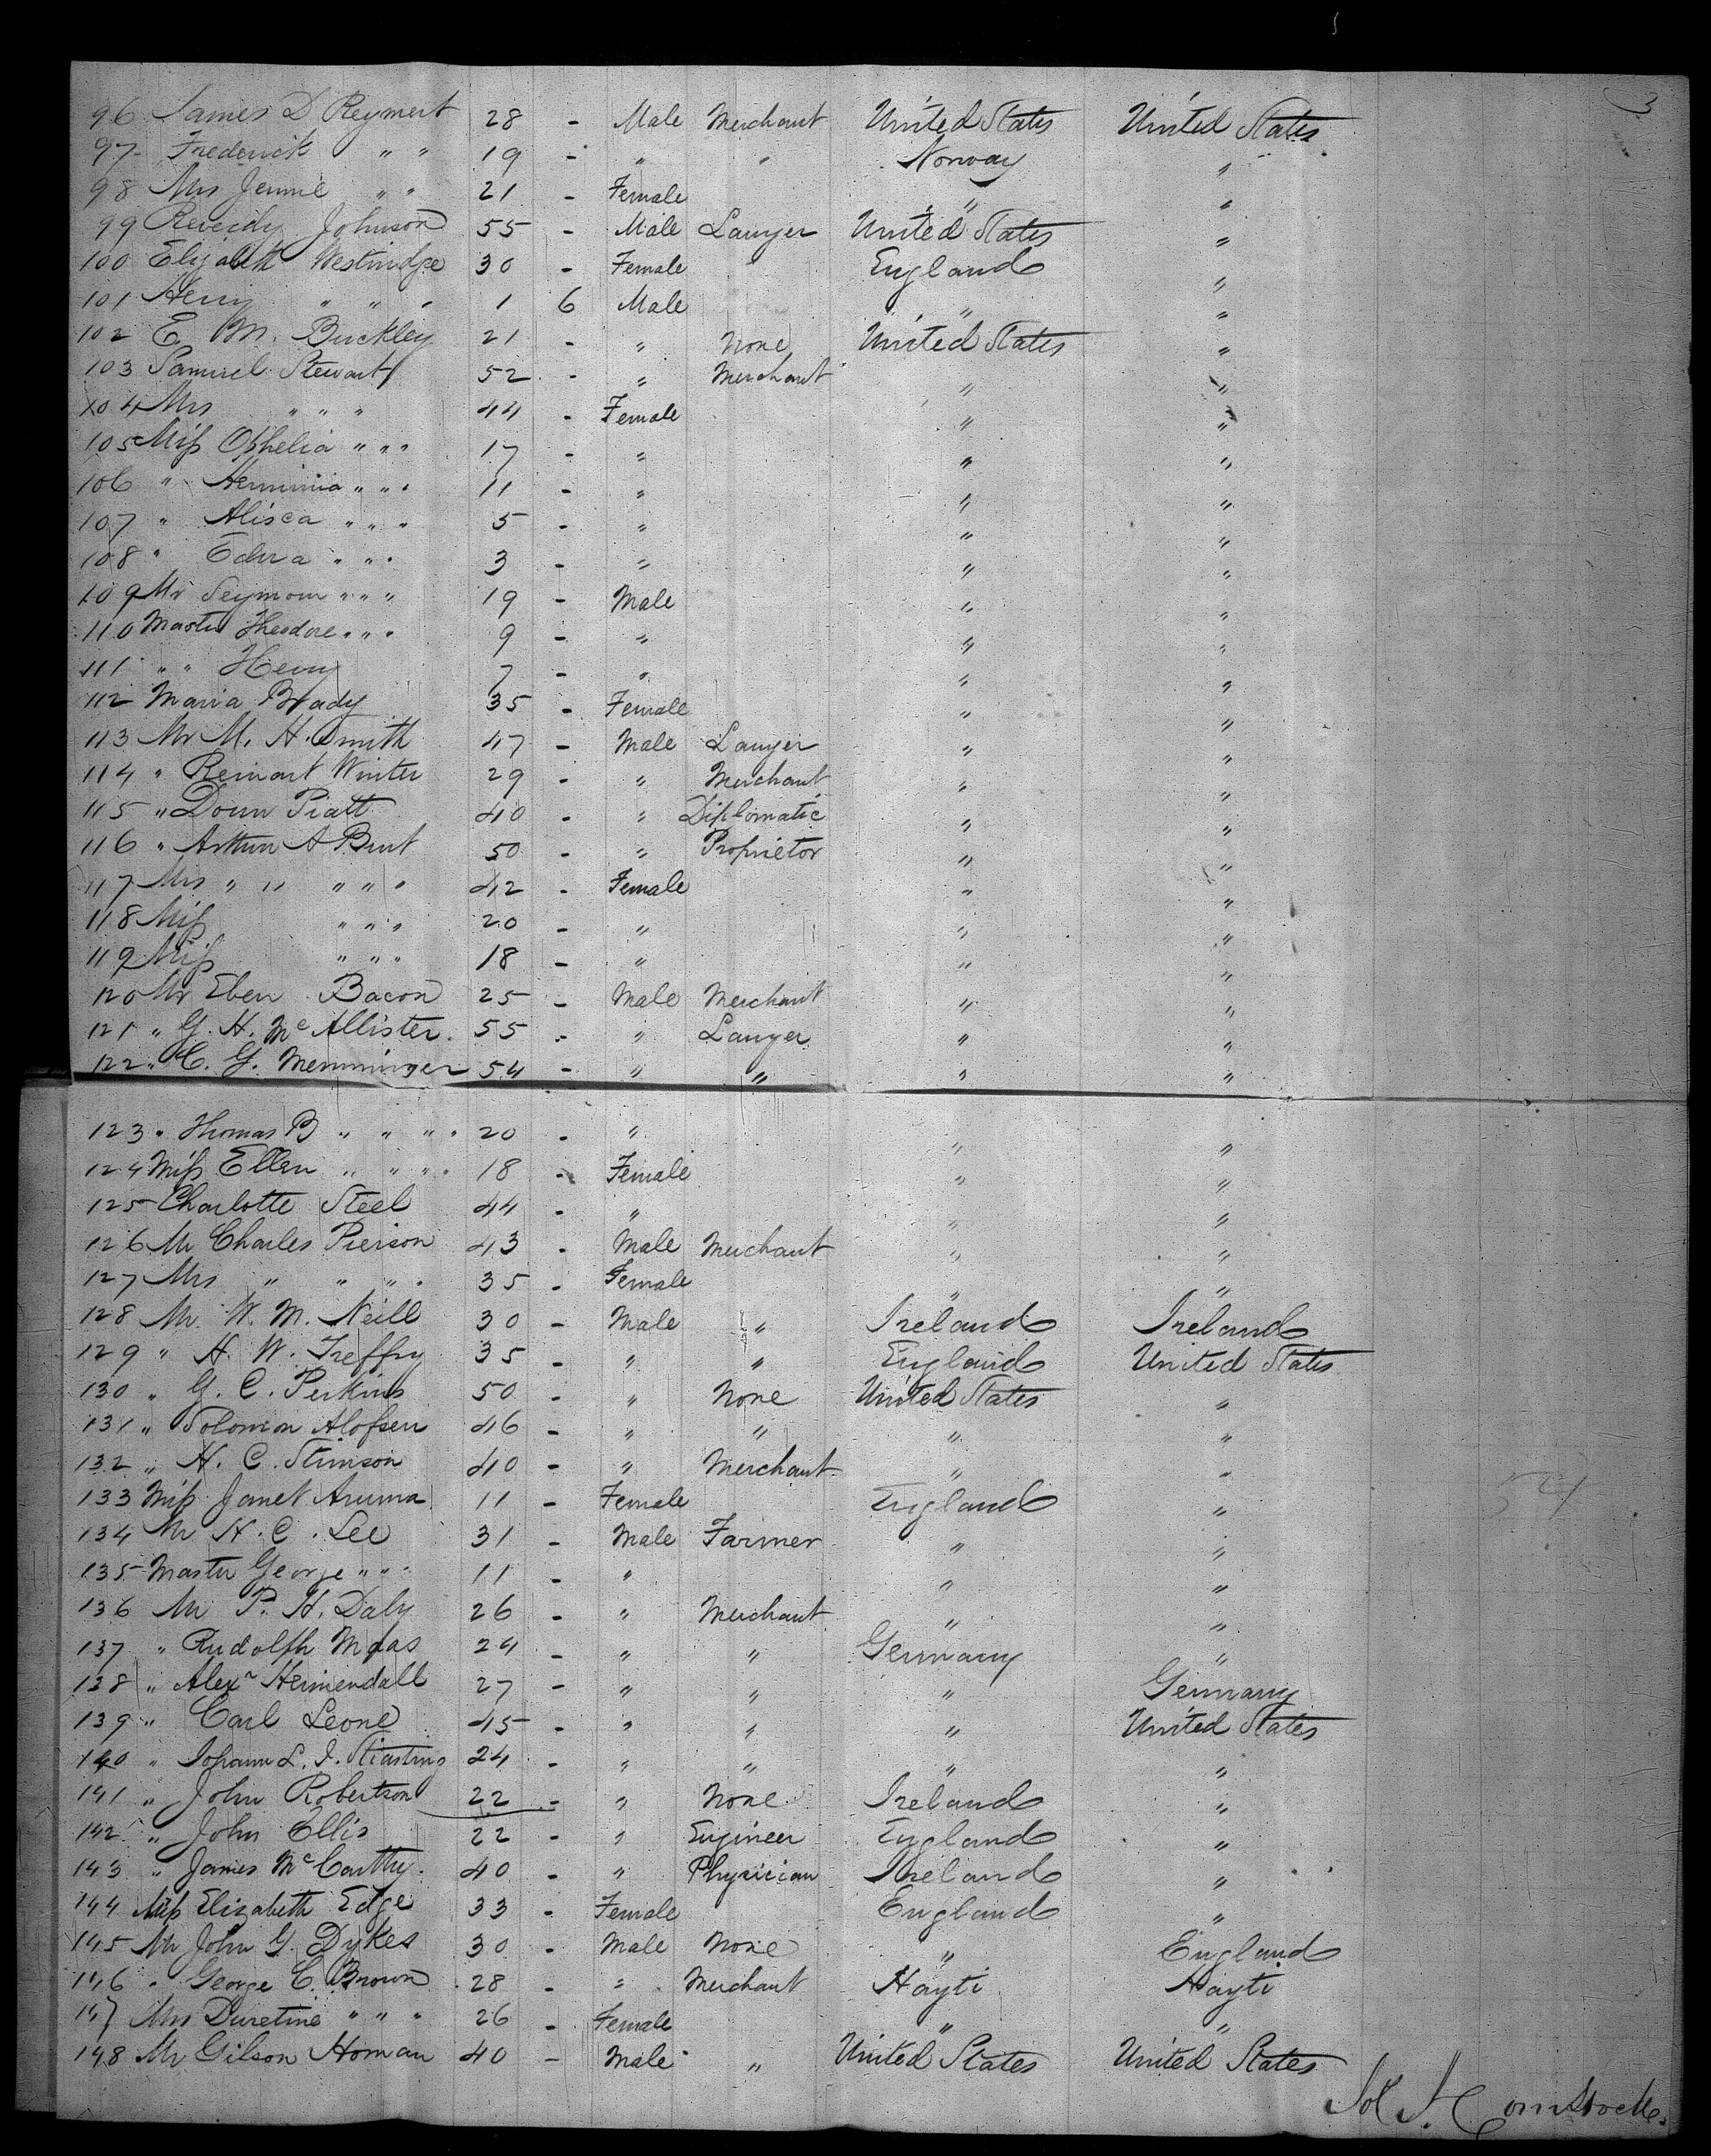 3
96 James D Reymert 28 - Male Merchant United States United States
97 Frederick " " 19 - " " Norway "
98 Mrs Jennie " " 21 - Female " "
99 Reverdy Johnson 55 - Male Lawyer United States "
100 Elizabeth Westridge 30 - Female England "
101 Henry " " " 1 6 Male " "
102 E. M. Buckley 21 - " None United States "
103 Samuel Stewart 52 - " Merchant " "
104 Mrs " " " 44 - Female " "
105 Miss Ophelia " " " 17 - " " "
106 " Herminia " " " 11 - " " "
107 " Alisca " " " 5 - " " "
108 " Edna " " " 3 - " " "
109 Mr Seymour " " " 19 - Male " "
110 Master Theodore " " " 9 - " " "
111 " " Henry 7 - " " "
112 Maria Brady 35 - Female " "
113 Mr M. H. Smith 47 - Male Lawyer " "
114 " Reinart Winter 29 - " Merchant " "
115 " Donn Piatt 40 - " Diplomatic " "
116 " Arthur A Burt 50 - " Proprietor " "
117 Mrs " " " " " 42 - Female " "
118 Miss " " " 20 - " " "
119 Miss " " " 18 - " " "
120 Mr Eben Bacon 25 - Male Merchant " "
121 " G. H. McAllister. 55 - " Lawyer " "
122 " C. G. Memminger 54 - " " " "
123 " Thomas B " " " " 20 - " " "
124 Miss Ellen " " " " 18 - Female " "
125 Charlotte Steel 44 - " " "
126 Mr Charles Pierson 43 - Male Merchant " "
127 Mrs " " " " 35 - Female " "
128 Mr. W. M. Neill 30 - Male " Ireland Ireland
129 " H. W. Treffry 35 - " " England United States
130 " G. C. Perkins 50 - " None United States "
131 " Solomon Alofsen 46 - " " " "
132 " H. C. Stimson 40 - " Merchant " "
133 Miss Janet Aruma 11 - Female England "
134 Mr H. C. Lee 31 - Male Farmer " "
135 Master George " " " 11 - " " "
136 Mr P. H. Daly 26 - " Merchant " "
137 " Rudolph Maas 24 - " " Germany "
138 " Alexr Heimendall 27 - " " " Germany
139 " Carl Leone 45 - " " " United States
140 " Johann L. J. Stiasting 24 - " " " "
141 " John Robertson 22 - " None Ireland "
142 " John Ellis 22 - " Engineer England "
143 " James McCarthy. 40 - " Physician Ireland "
144 Miss Elizabeth Edge 33 - Female England "
145 Mr John G. Dykes 30 - Male None " England
146 " George C. Brown 28 - " Merchant Hayti Hayti
147 Mrs Duretine " " " 26 - Female " "
148 Mr Gilson Homan 40 - Male " United States United States
Comstock